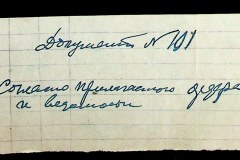 Документ № 101
Согласно прилагаемого
и ведомости